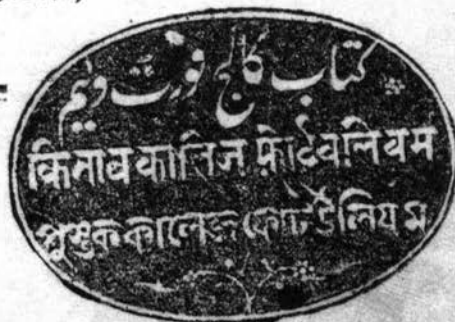 کتاب کالج فورت ولیم
किताब कालिज फ़ोर्ट वलियम
পুস্তক কালেজ ফোর্ট উলিয়ম